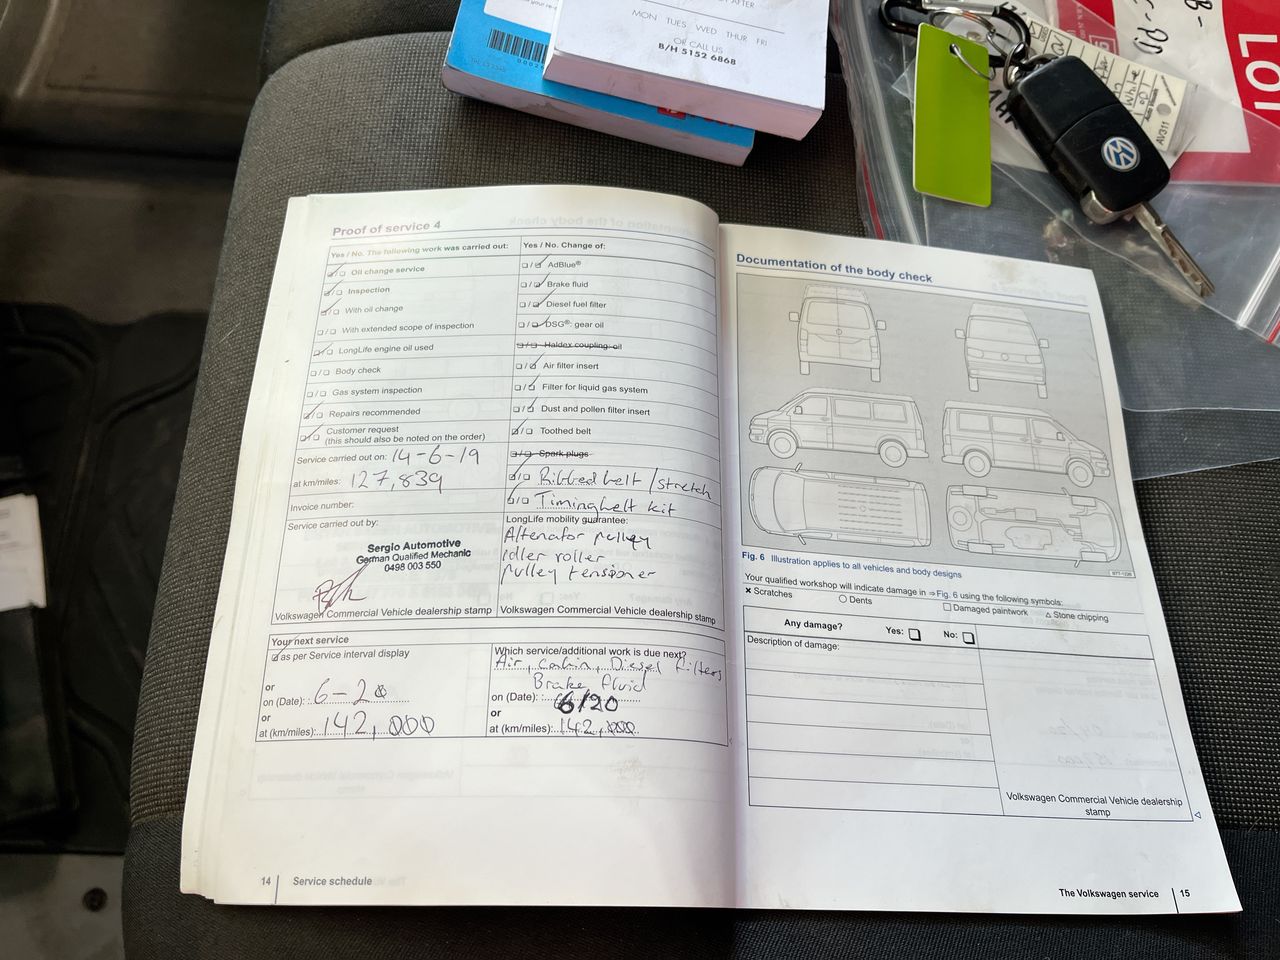 MON TUES WED THUR FRI
OR CALL US
B/H 5152 6868
LOT
AV311
Proof of service 4
Yes / No. The following work was carried out:
Oil change service
Inspection
With oil change
With extended scope of inspection
LongLife engine oil used
Body check
Gas system inspection
Repairs recommended
Customer request
(this should also be noted on the order)
Service carried out on: 14-6-19
at km/miles: 127,839
Invoice number:
Service carried out by:
Sergio Automotive
German Qualified Mechanic
0498 003 550
Volkswagen Commercial Vehicle dealership stamp
Yes / No. Change of:
AdBlue®
Brake fluid
Diesel fuel filter
DSG®: gear oil
Haldex coupling: oil
Air filter insert
Filter for liquid gas system
Dust and pollen filter insert
Toothed belt
Spark plugs
Ribbed belt / stretch
Timing belt kit
LongLife mobility guarantee:
Altenator pulley
idler roller
Pulley tensioner
Volkswagen Commercial Vehicle dealership stamp
Your next service
as per Service interval display
or
on (Date): 6-20
or
at (km/miles): 142,000
Which service/additional work is due next?
Air, Cabin, Diesel filters
Brake fluid
on (Date): 6/20
or
at (km/miles): 142,000
14 Service schedule
Documentation of the body check
Fig. 6 Illustration applies to all vehicles and body designs
Your qualified workshop will indicate damage in ⇒Fig. 6 using the following symbols:
× Scratches ○ Dents □ Damaged paintwork △ Stone chipping
Any damage? Yes: □ No: □
Description of damage:
Volkswagen Commercial Vehicle dealership
stamp
The Volkswagen service 15